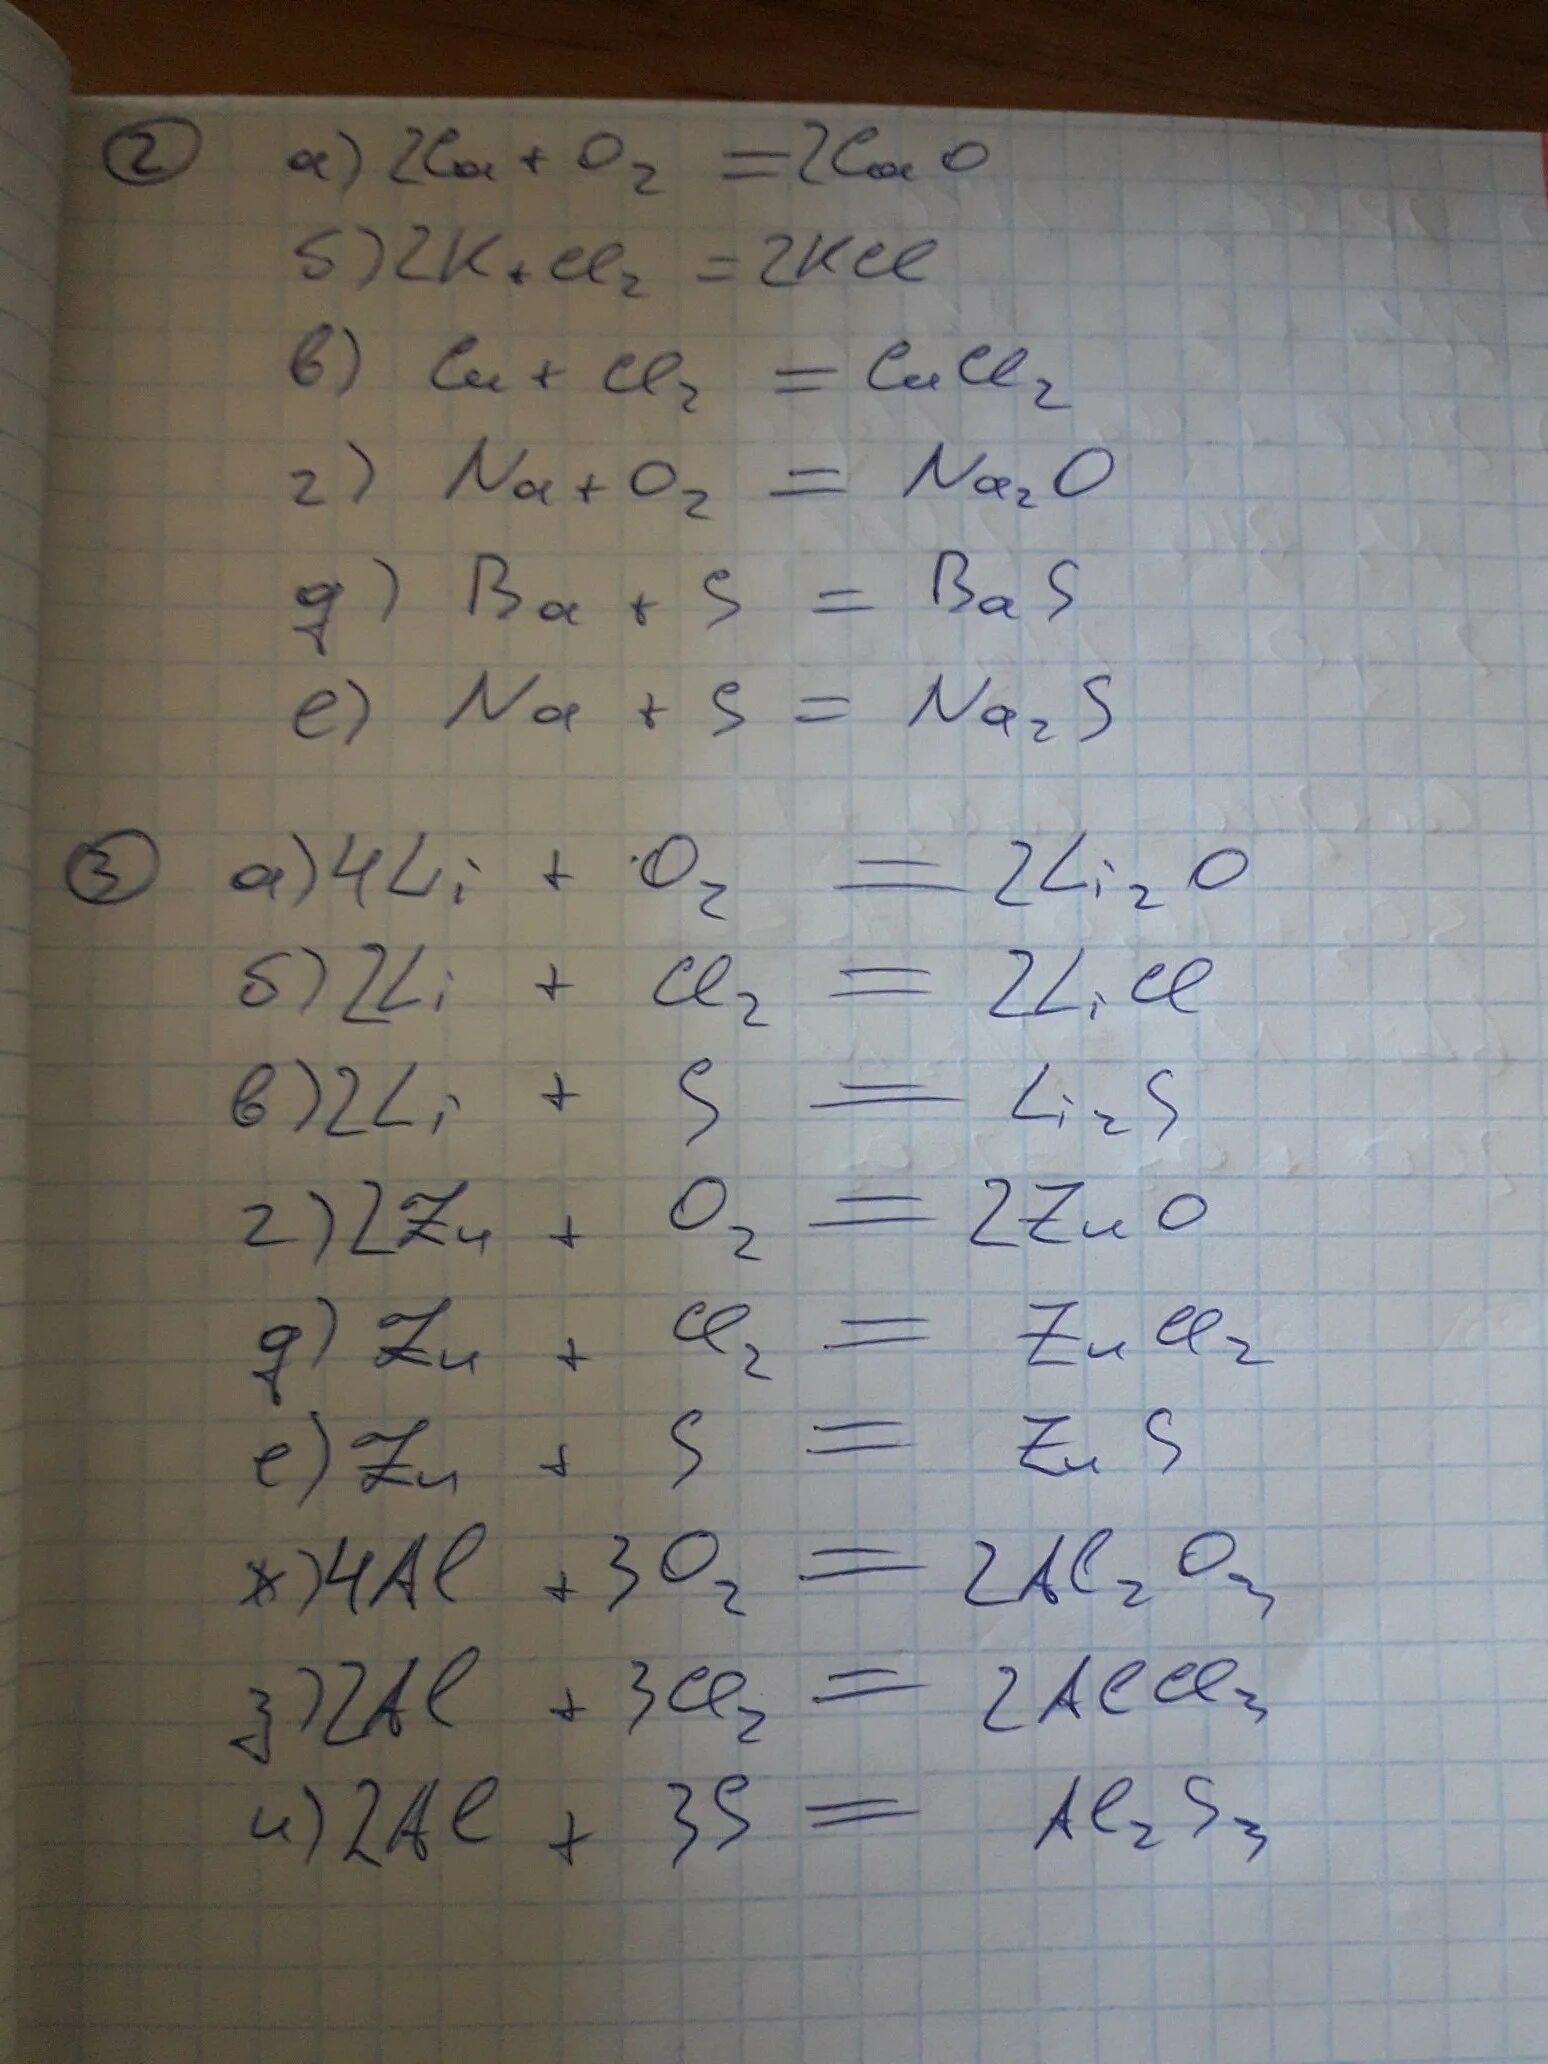 2 а) 2Ca + O₂ = 2CaO
б) 2K + Cl₂ = 2KCl
в) Cu + Cl₂ = CuCl₂
г) Na + O₂ = Na₂O
д) Ba + S = BaS
е) Na + S = Na₂S
3 а) 4Li + O₂ = 2Li₂O
б) 2Li + Cl₂ = 2LiCl
в) 2Li + S = Li₂S
г) 2Zn + O₂ = 2ZnO
д) Zn + Cl₂ = ZnCl₂
е) Zn + S = ZnS
ж) 4Al + 3O₂ = 2Al₂O₃
з) 2Al + 3Cl₂ = 2AlCl₃
и) 2Al + 3S = Al₂S₃